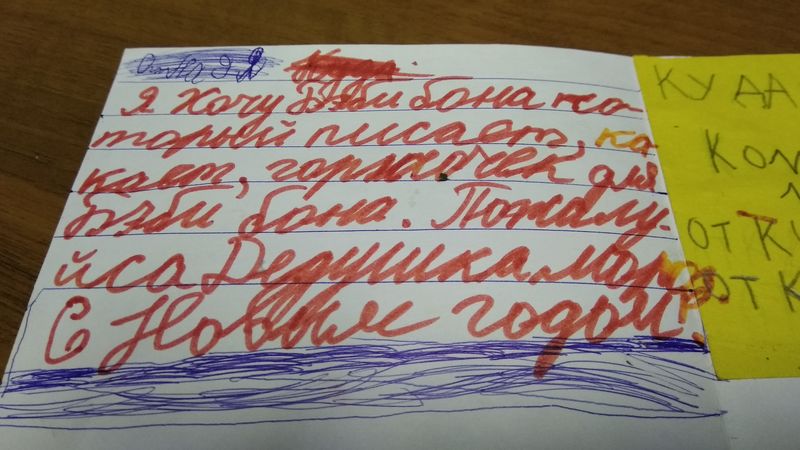 Я хочу Бэби бона ко-
торый писает, ка
кает, горшочек для
Бэби бона. Пожалу-
йса Дедушка мороз
С Новым годом!
КУДА
КОМ
ОТ К
ОТ К